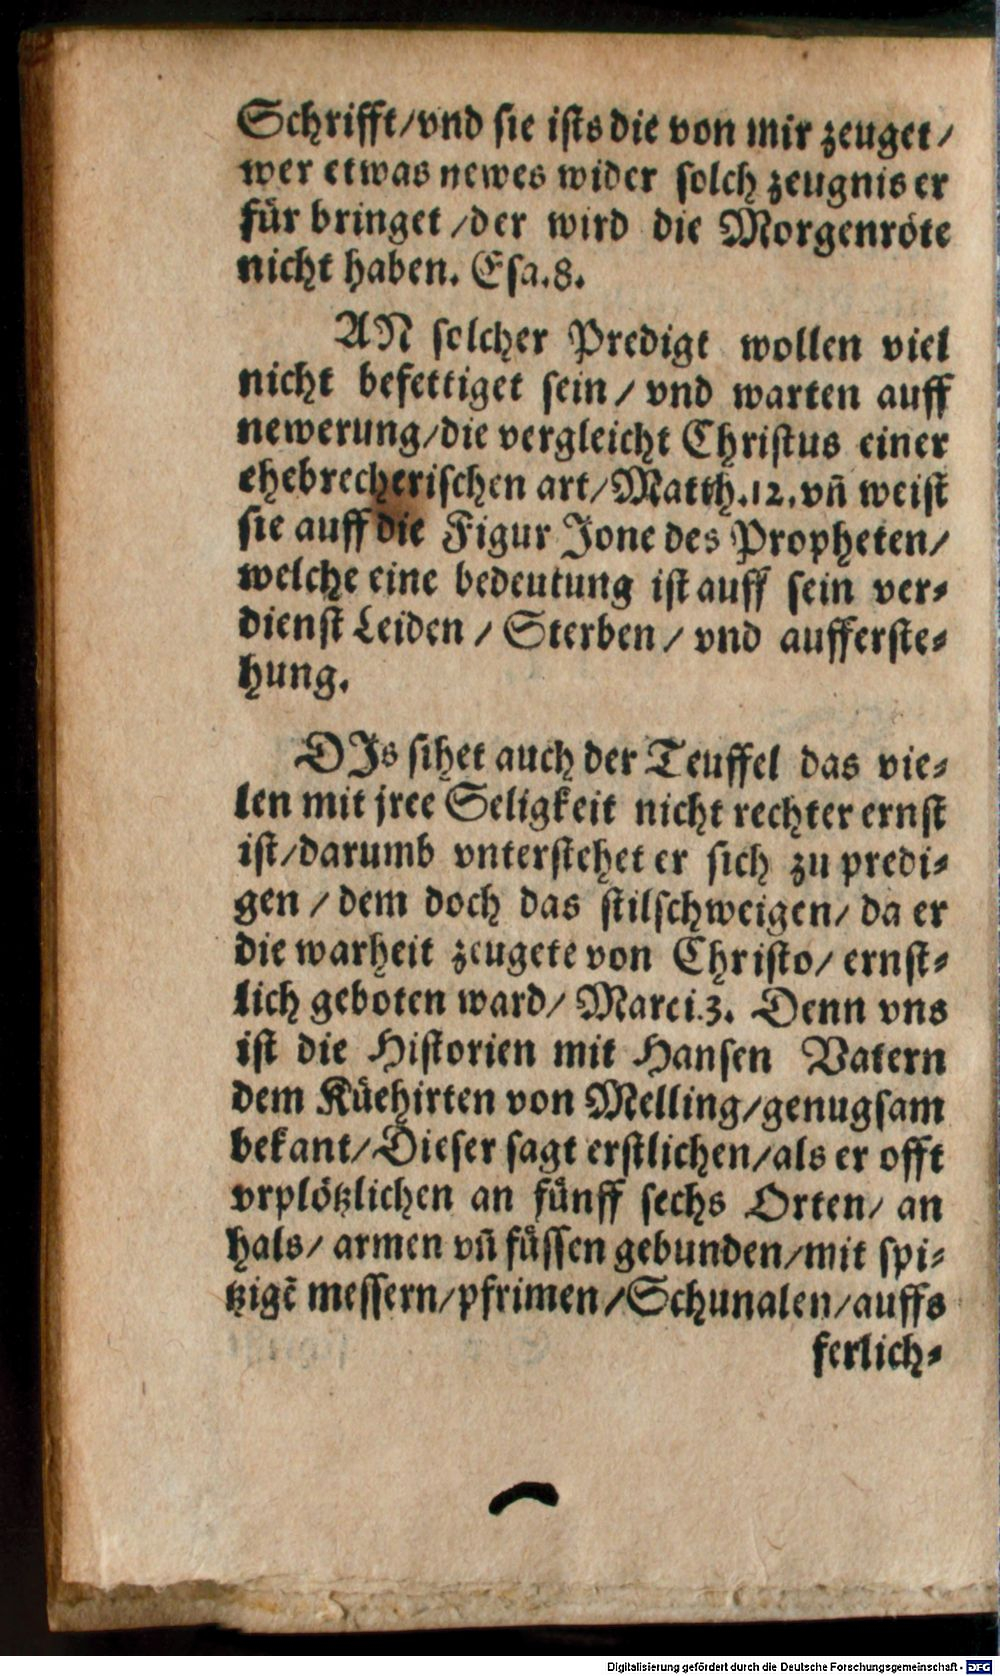 Schrifft/vnd sie ists die von mir zeuget/
wer etwas newes wider solch zeugnis er
für bringet /der wird die Morgenröte
nicht haben. Esa.8.
AN solcher Predigt wollen viel
nicht befettiget sein/ vnd warten auff
newerung/die vergleicht Christus einer
ehebrecherischen art/Matth.12.vñ weist
sie auff die Figur Jone des Propheten/
welche eine bedeutung ist auff sein ver-
dienst Leiden / Sterben/ vnd aufferste-
hung.
DJs sihet auch der Teuffel das vie-
len mit jree Seligkeit nicht rechter ernst
ist/darumb vnterstehet er sich zu predi-
gen / dem doch das stilschweigen/ da er
die warheit zeugete von Christo/ ernst-
lich geboten ward/ Marci.3. Denn vns
ist die Historien mit Hansen Vatern
dem Küehirten von Melling/genugsam
bekant/Dieser sagt erstlichen/als er offt
vrplötzlichen an fünff sechs Orten/ an
hals/ armen vñ füssen gebunden/mit spi-
tzigẽ messern/pfrimen/Schunalen/auffs
ferlich-
Digitalisierung gefördert durch die Deutsche Forschungsgemeinschaft - DFG